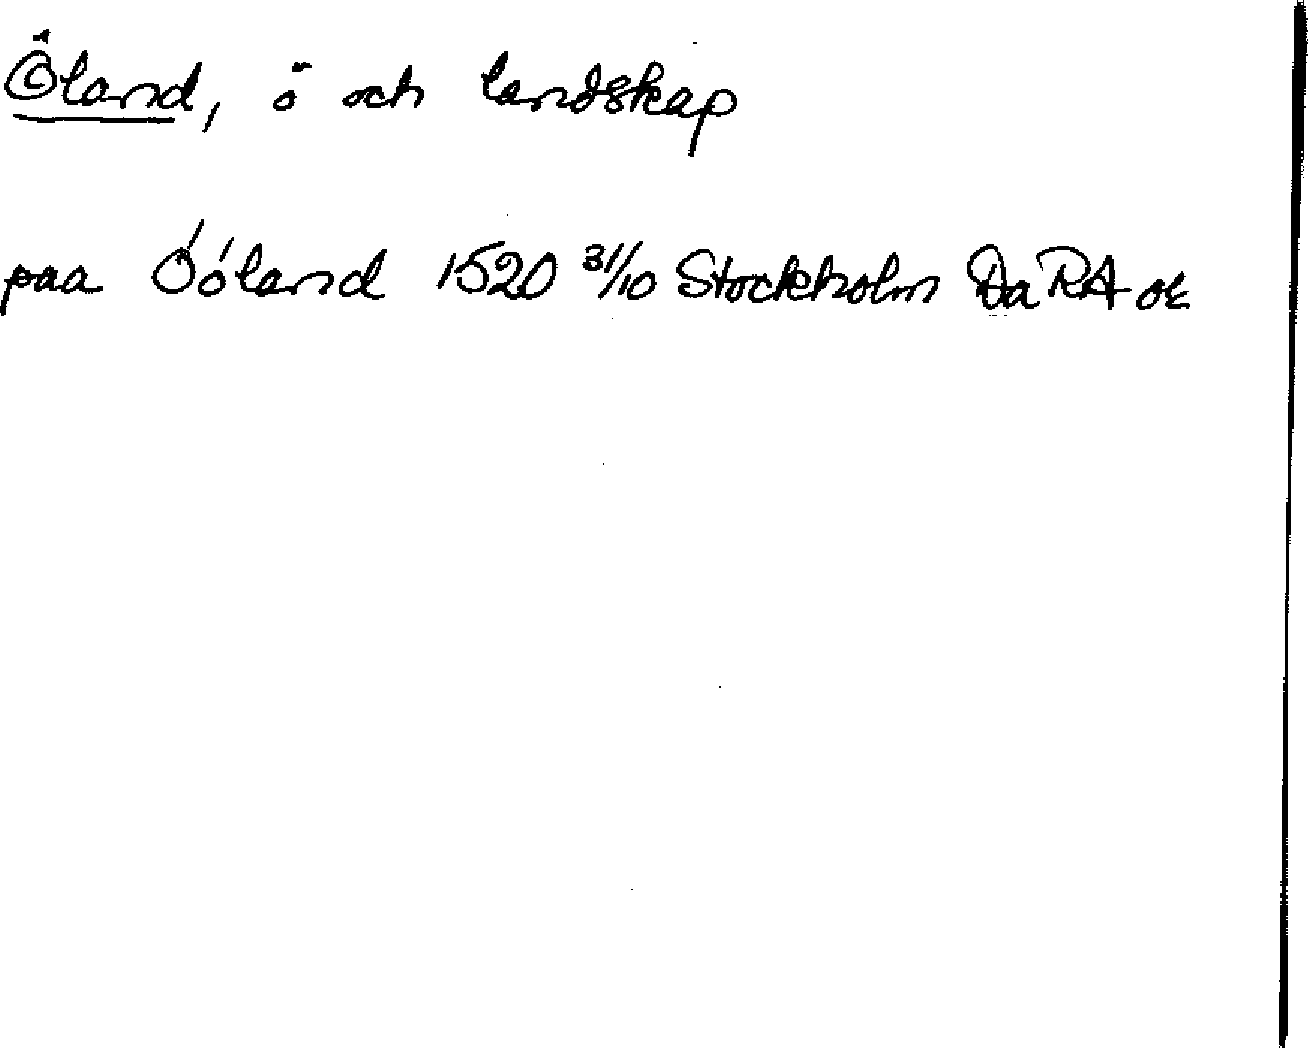 Öland, ö och landskap
paa Óóland 1520 31/10 Stockholm Da RA or